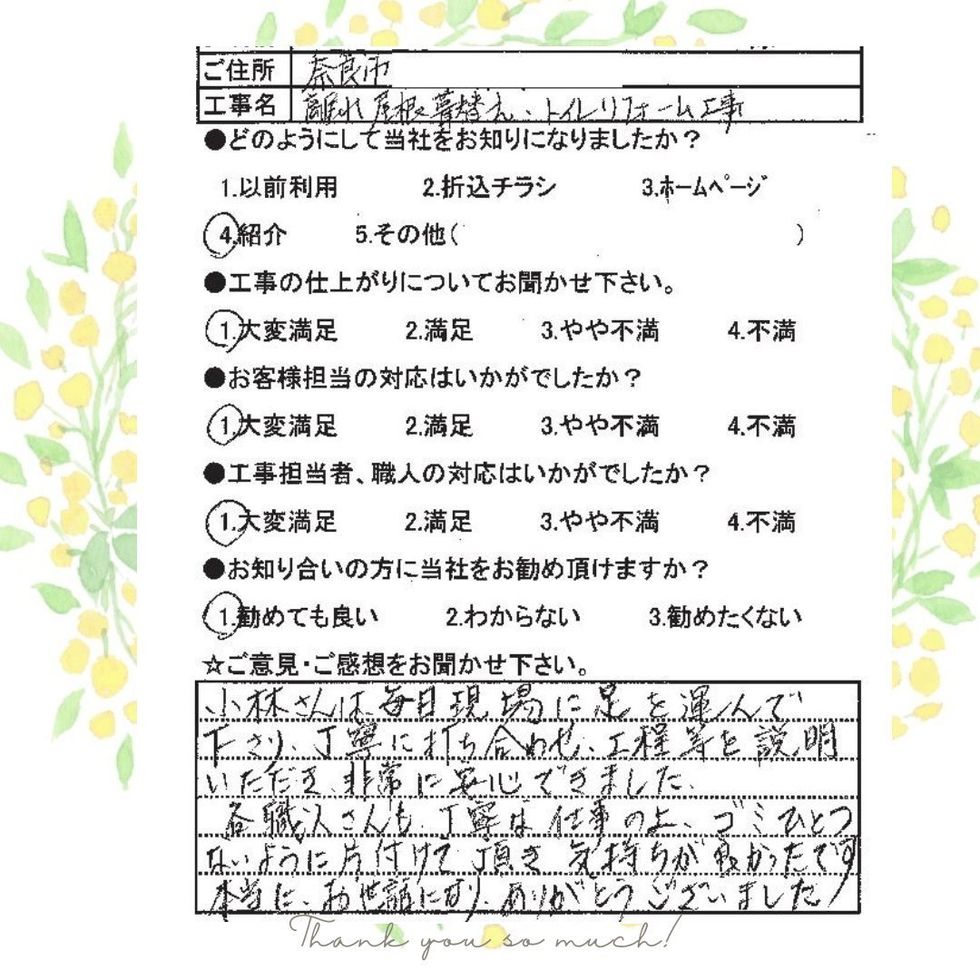 ご住所 奈良市
工事名 離れ屋根葺替え、トイレリフォーム工事
●どのようにして当社をお知りになりましたか？
1.以前利用 2.折込チラシ 3.ホームページ
4.紹介 5.その他( )
●工事の仕上がりについてお聞かせ下さい。
1.大変満足 2.満足 3.やや不満 4.不満
●お客様担当の対応はいかがでしたか？
1.大変満足 2.満足 3.やや不満 4.不満
●工事担当者、職人の対応はいかがでしたか？
1.大変満足 2.満足 3.やや不満 4.不満
●お知り合いの方に当社をお勧め頂けますか？
1.勧めても良い 2.わからない 3.勧めたくない
☆ご意見・ご感想をお聞かせ下さい。
小林さんは毎日現場に足を運んで
下さり、丁寧に打ち合わせ、工程等を説明
いただき、非常に安心できました。
各職人さんも、丁寧な仕事の上、ゴミひとつ
ないように片付けて頂き気持ちが良かったです
本当に、お世話になり、ありがとうございました
Thank you so much!